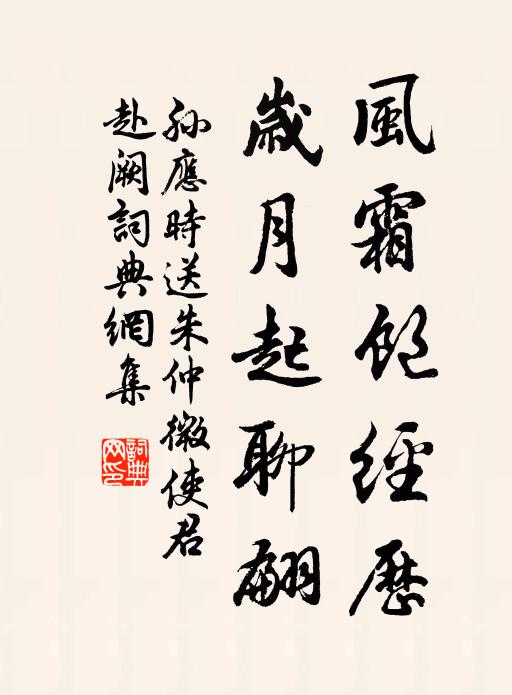 風霜飽經歷
歲月起聊翩
孫應時送朱仲微使君
赴闕詞典網集
詞典网印